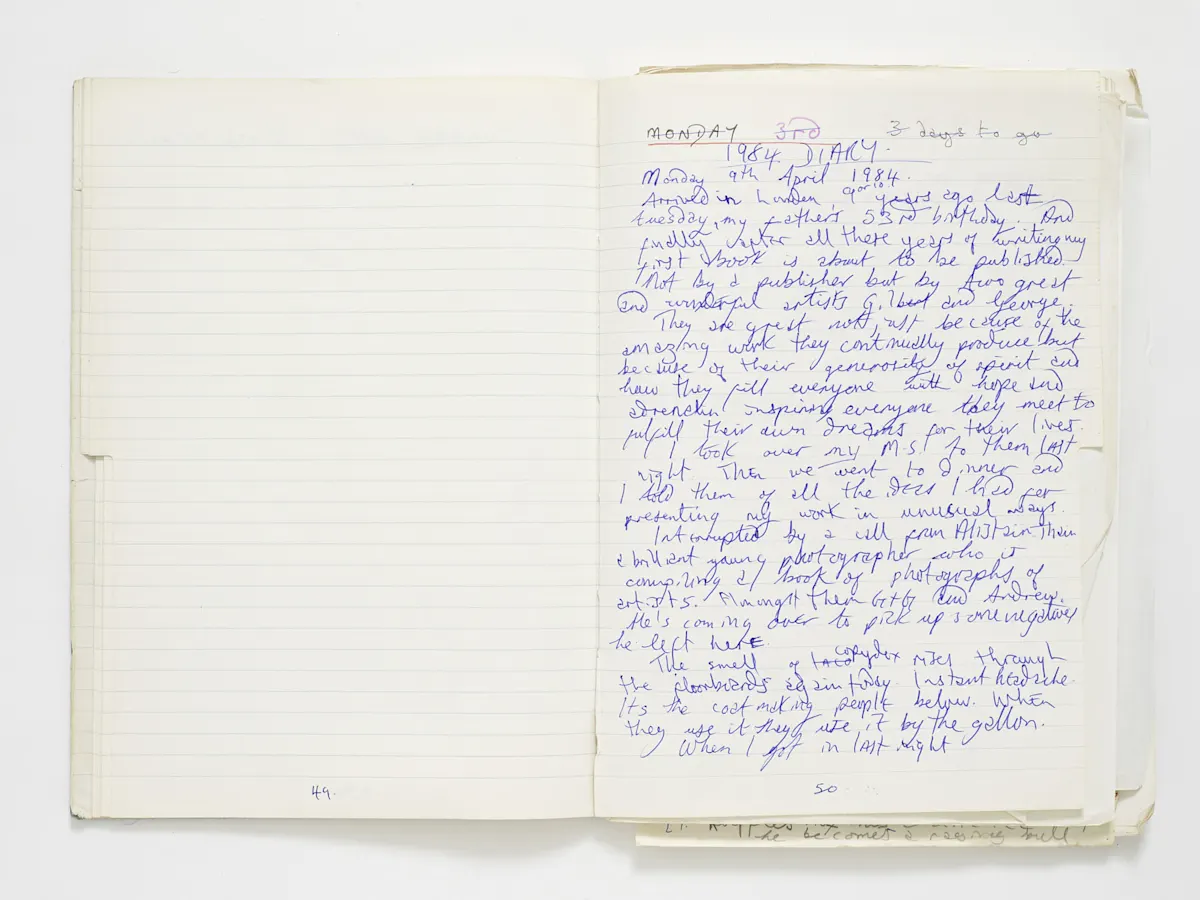 MONDAY 3rd 3 days to go
1984 DIARY.
Monday 9th April 1984.
Arrived in London, 9 or 10 years ago last
tuesday, my father's 53rd birthday. And
finally after all these years of writing my
first book is about to be published.
Not by a publisher but by two great
and wonderful artists Gilbert and George.
They are great not just because of the
amazing work they continually produce but
because of their generosity of spirit and
how they fill everyone with hope and
adrenalin inspiring everyone they meet to
fulfill their own dreams for their lives.
I took over my M.S. to them last
night. Then we went to dinner and
I told them of all the ideas I had for
presenting my work in unusual ways.
Interrupted by a call from Alistair Thain
a brilliant young photographer who is
compiling a book of photographs of
artists. Amongst them G+G and Andrew.
He's coming over to pick up some negatives
he left here
The smell of copydex rises through
the floorboards again today. Instant headache.
Its the coat making people below. When
they use it they use it by the gallon.
When I got in last night
49.
50
he becomes a raging bull!